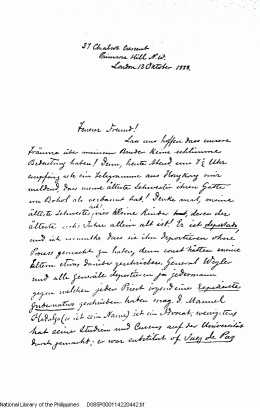 37 Chalcot Crescent
Primrose Hill N.W.
London 13 October 1888.
Teurer Freund!
Lass uns hoffen dass unsere
Träume über meinen Bruder keine schlimme
Bedeutung haben! Denn, heute Abend um 7½ Uhr
empfing ich ein Telegramme aus Hongkong mir
meldend, dass meine älteste Schwester ihren Gatten
von Bohol als verbannt hat! Denke mal, meine
älteste Schwester, vier kleine Kinder hat, deren der
älteste sechs Jahre allein alt ist! Er ist deportado,
und ich vermuthe dass sie ihn deportierten ohne
Process gemacht zu haben, denn sonst hätten meine
Eltern etwas darüber geschrieben. General Weyler
und alle generäle deportieren ja jedermann
gegen welchen jeder Priest irgend einen Expediente
Gubernativo geschrieben haben mag. D. Manuel
Hidalgo (so ist sein Name) ist ein Advocat; wenigstens
hat seine Studien und Cursus auf der Universität
durchgemacht; er war substitut of Juez de Paz
National Library of the Philippines D085R00011422044​2.tif